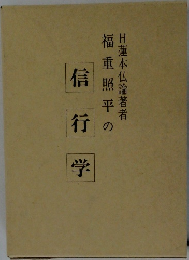 日蓮本仏論著者
福重照平の
信行学